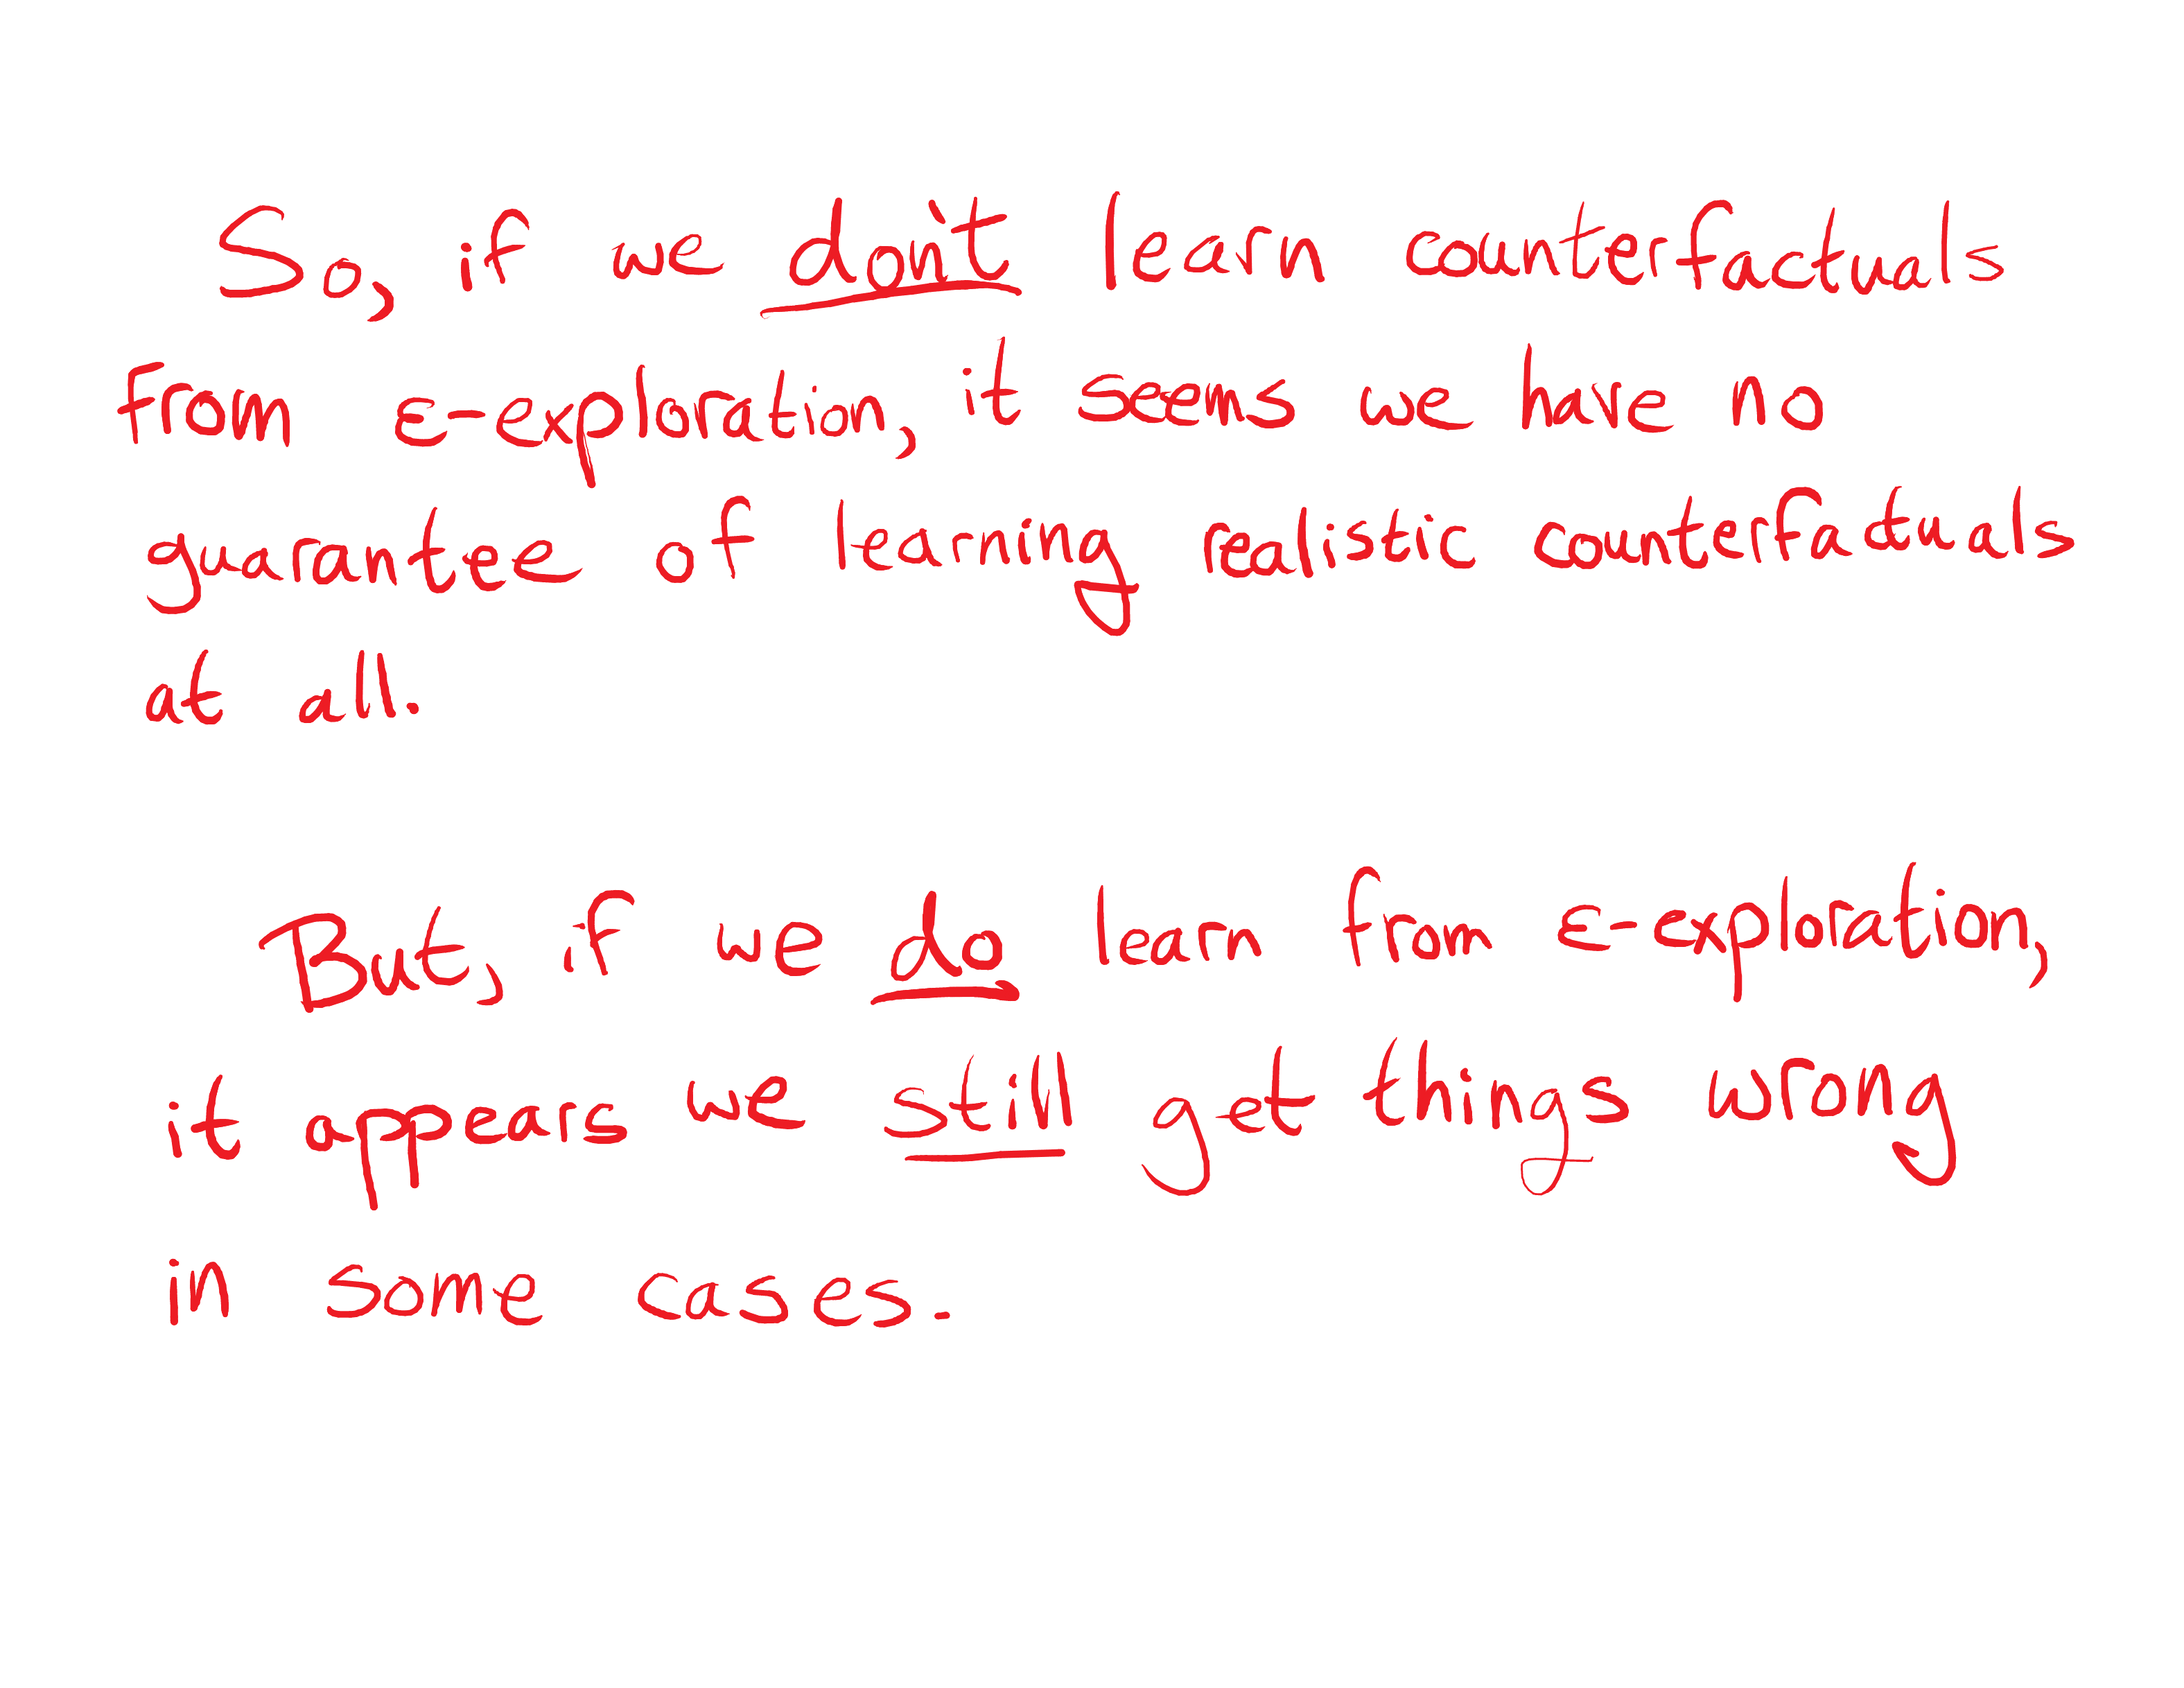 So, if we don't learn counterfactuals
from ε-exploration, it seems we have no
guarantee of learning realistic counterfactuals
at all.
But, if we do learn from ε-exploration,
it appears we still get things wrong
in some cases.